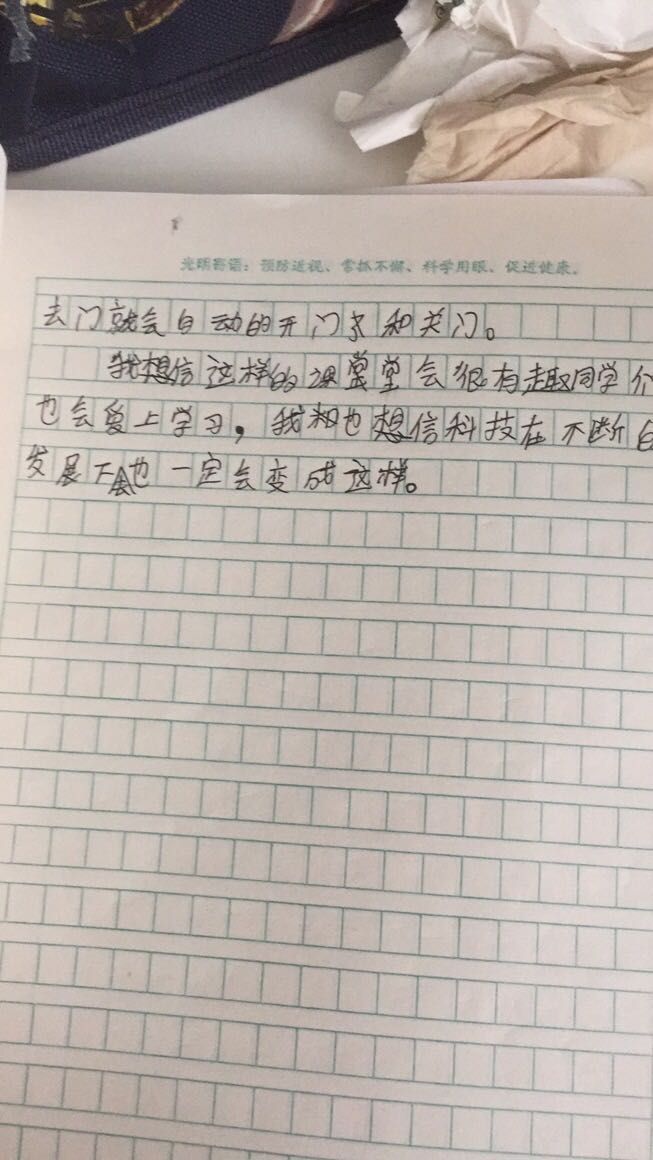 光明寄语：预防近视、常抓不懈、科学用眼、促进健康。
去门就会自动的开门和关门。
我想信这样的课堂会很有趣同学
也会爱上学习，我也想信科技在不断
发展下也一定会变成这样。